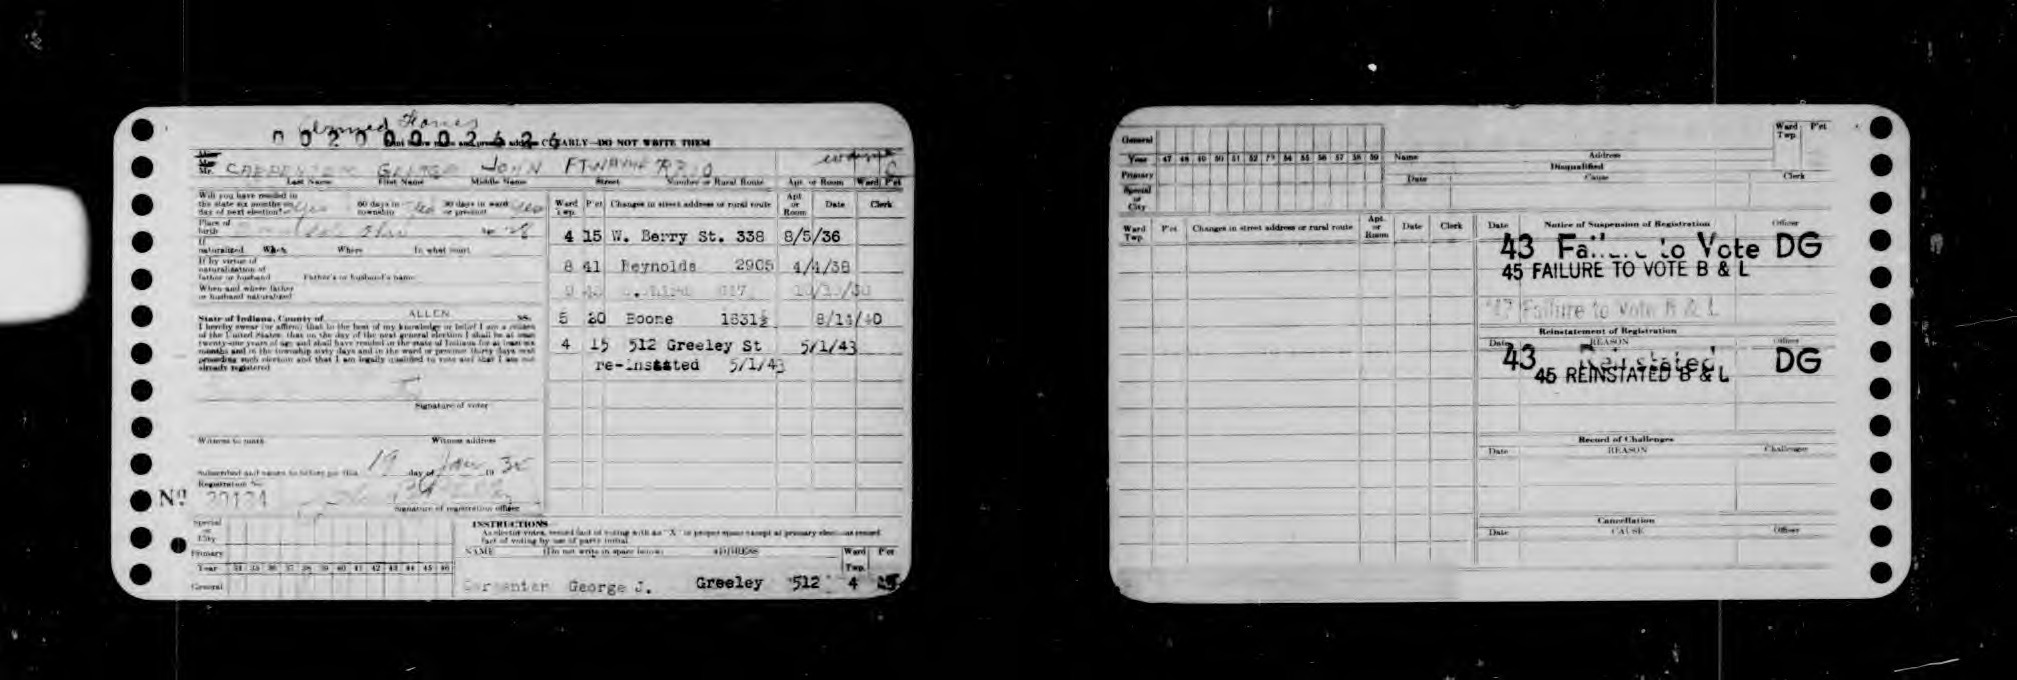 Armed Forces
00200002626
ABLY—DO NOT WRITE THEM
Mr. CARPENTER GEORGE JOHN FT WAYNE R R 10
Last Name First Name Middle Name Street Number or Rural Route Apt. or Room Ward P'ct
Will you have resided in
the state six months on 60 days in 30 days in ward
day of next election? Yes township Yes or precinct Yes
Place of
birth
If
naturalized When Where In what court
If by virtue of
naturalization of
father or husband Father's or husband's name
When and where father
or husband naturalized
State of Indiana, County of ALLEN ss.
I hereby swear (or affirm) that to the best of my knowledge or belief I am a citizen
of the United States; that on the day of the next general election I shall be at least
twenty-one years of age and shall have resided in the state of Indiana for at least six
months and in the township sixty days and in the ward or precinct thirty days next
preceding such election and that I am legally qualified to vote and that I am not
already registered
Signature of voter
Witness to mark Witness address
Subscribed and sworn to before me this 19 day of Jan 19
Registration No.
Nº
Signature of registration officer
Ward Twp. P'ct Changes in street address or rural route Apt. or Room Date Clerk
4 15 W. Berry St. 338 8/5/36
8 41 Reynolds 2905 4/4/38
5 20 Boone 1831½ 8/14/40
4 15 512 Greeley St 5/1/43
re-instated 5/1/43
Special
or
City
Primary
Year 34 35 36 37 38 39 40 41 42 43 44 45 46
General
INSTRUCTIONS
As elector votes, record fact of voting with an "X" in proper space except at primary elections record
fact of voting by use of party initial
NAME (Do not write in space below) ADDRESS Ward Twp. P'ct
Carpenter George J. Greeley 512 4
General
Year 47 48 49 50 51 52 53 54 55 56 57 58 59
Primary
Special
or
City
Name Address Ward Twp. P'ct
Disqualified
Date Cause Clerk
Ward Twp. P'ct Changes in street address or rural route Apt. or Room Date Clerk
Date Notice of Suspension of Registration Officer
43 Failure to Vote DG
45 FAILURE TO VOTE B & L
'47 Failure to Vote B & L
Reinstatement of Registration
Date REASON Officer
43 Reinstated DG
45 REINSTATED B & L
Record of Challenges
Date REASON Challenger
Cancellation
Date CAUSE Officer